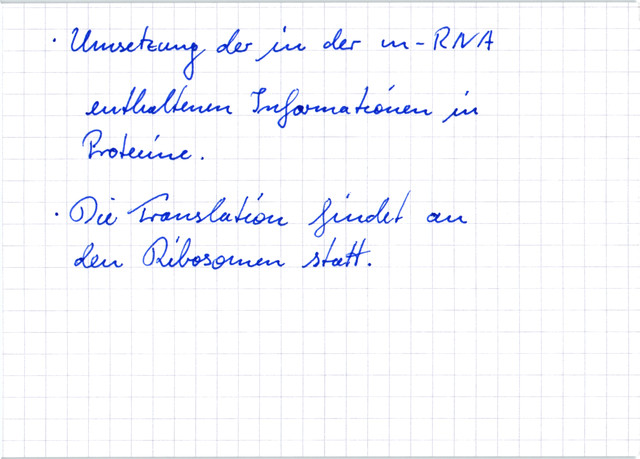 · Umsetzung der in der m-RNA
enthaltenen Informationen in
Proteine.
· Die Translation findet an
den Ribosomen statt.